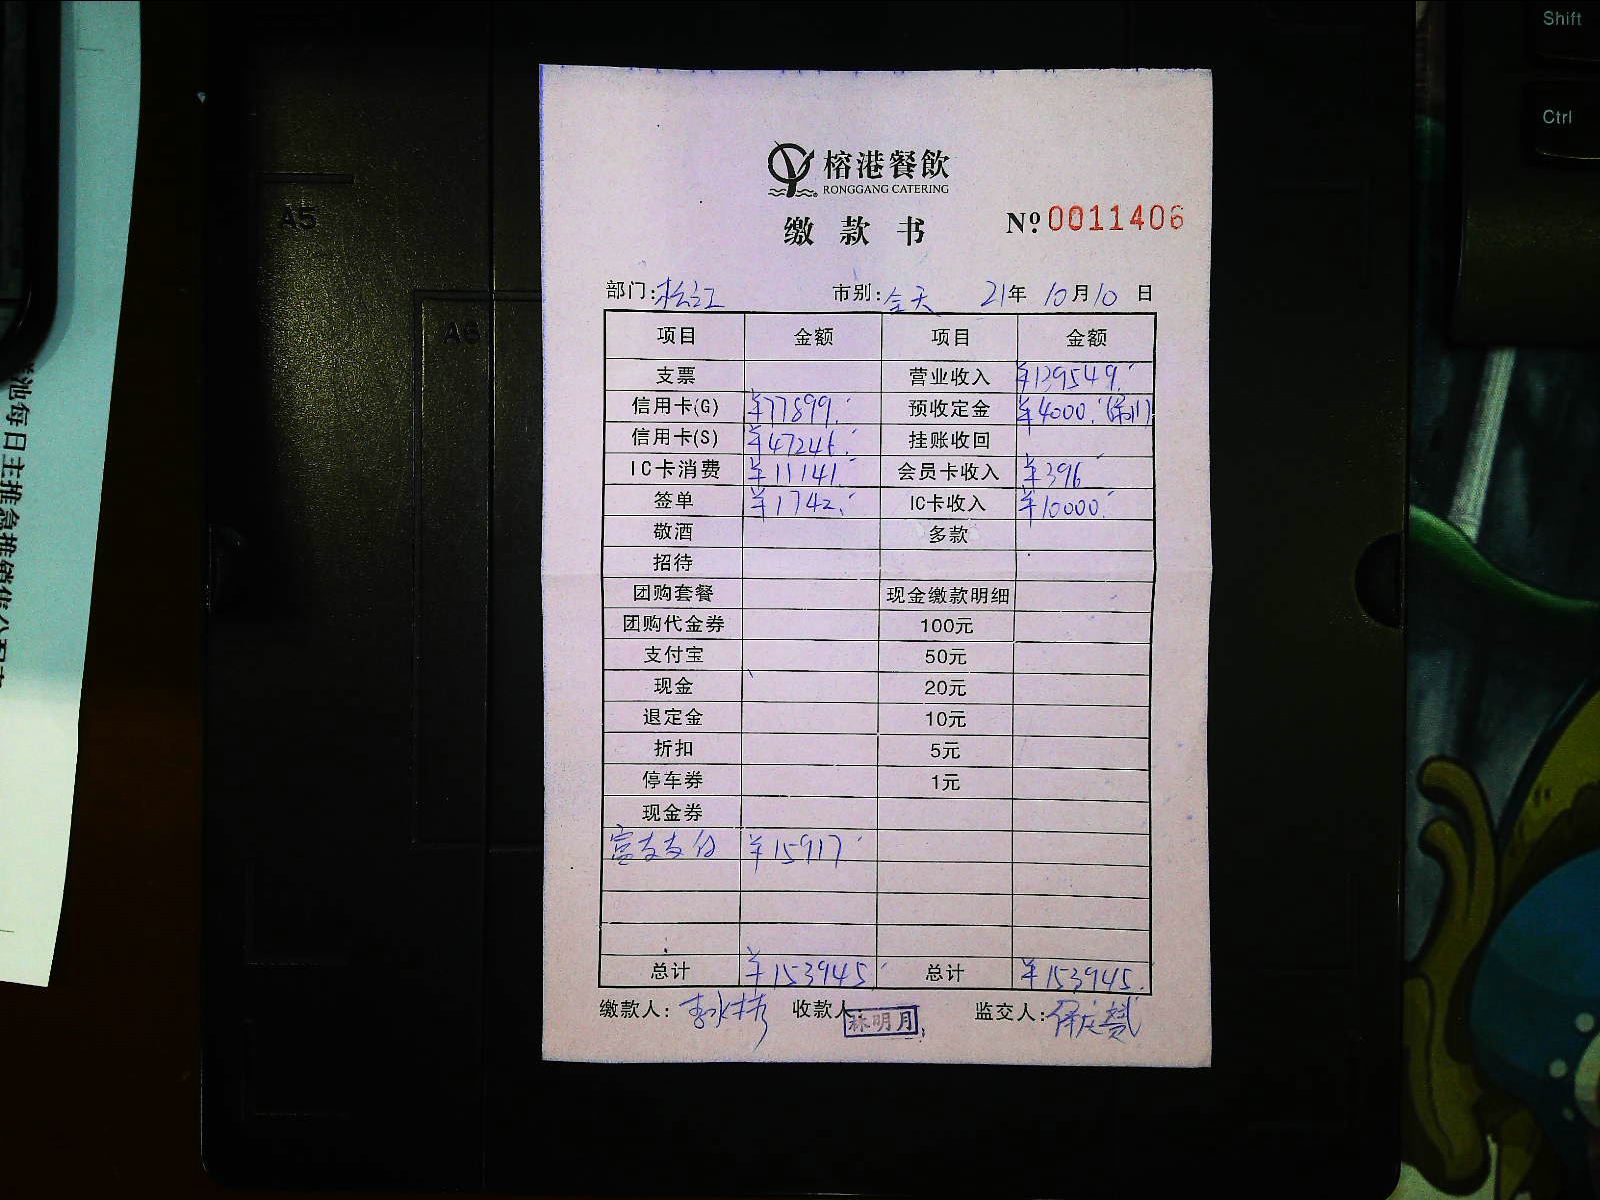 Shift
Ctrl
A5
A6
榕港餐飲
RONGGANG CATERING
缴款书
Nº 0011406
部门:松江 市别:全天 21年10月10日
项目 金额 项目 金额
支票 营业收入 ¥139549.
信用卡(G) ¥77899. 预收定金 ¥4000.
信用卡(S) ¥47246. 挂账收回
IC卡消费 ¥11141. 会员卡收入 ¥396
签单 ¥1742. IC卡收入 ¥10000.
敬酒 多款
招待
团购套餐 现金缴款明细
团购代金券 100元
支付宝 50元
现金 20元
退定金 10元
折扣 5元
停车券 1元
现金券
富友支付 ¥15917
总计 ¥153945. 总计 ¥153945.
缴款人: 收款人 林明月 监交人:
池每日主推急推销售分配表